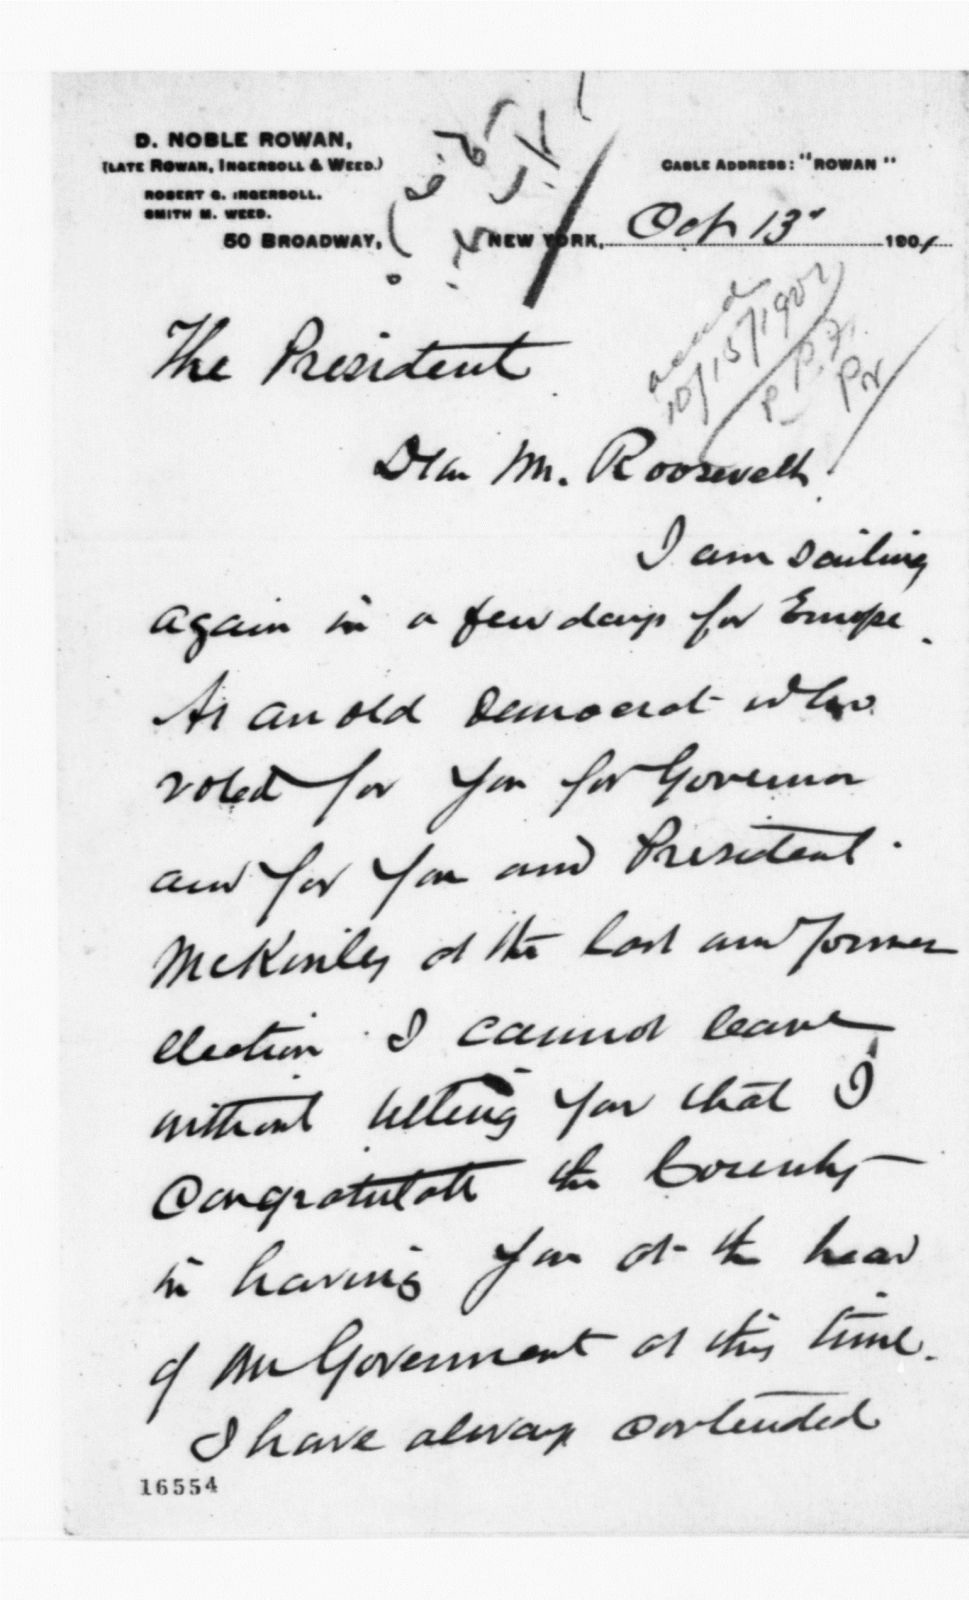 D. NOBLE ROWAN,
(LATE ROWAN, INGERSOLL & WEED.)
ROBERT G. INGERSOLL.
SMITH M. WEED.
50 BROADWAY,
CABLE ADDRESS: "ROWAN"
NEW YORK, Oct 13 1901
ackd
10/15/1901
P.P.F.
The President
Dear Mr. Roosevelt,
I am sailing
again in a few days for Europe.
As an old Democrat who
voted for you for Governor
and for you and President
McKinley at the last and former
election I cannot leave
without telling you that I
congratulate the Country
in having you at the head
of our Government at this time.
I have always contended
16554